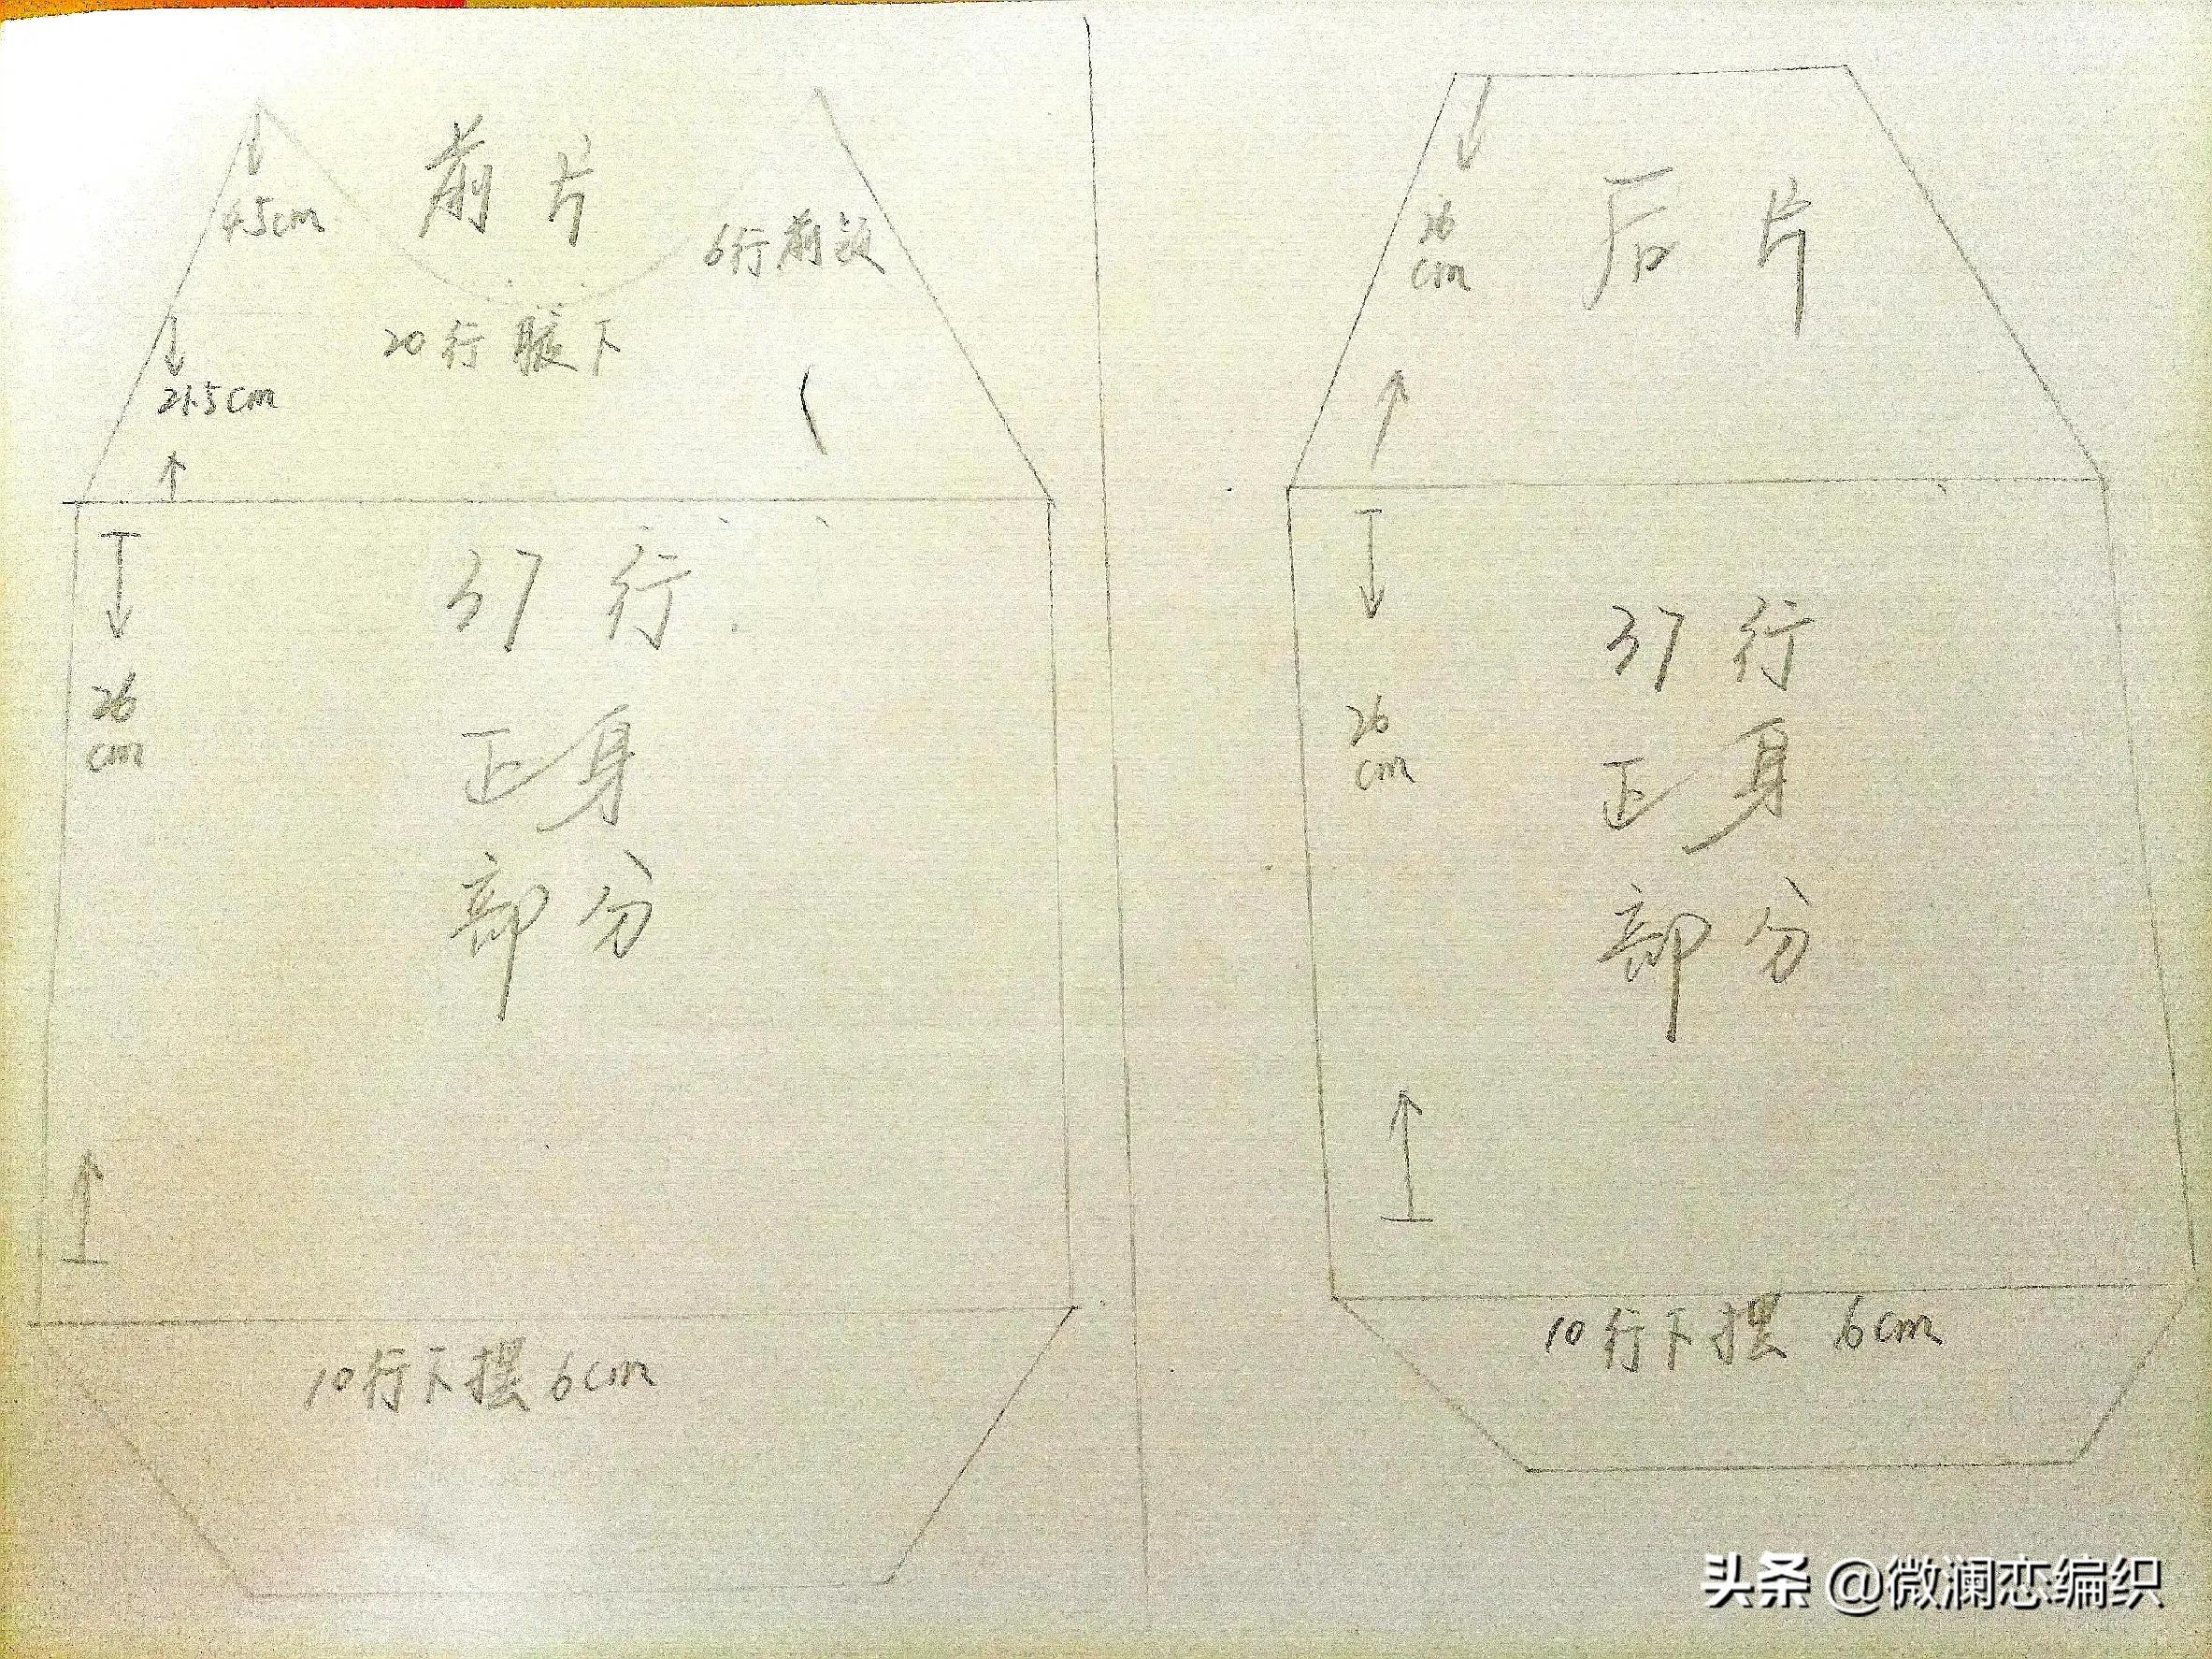 前片
4.5cm
6行前领
20行腋下
21.5cm
37行
26
cm
正身
部分
10行下摆 6cm
后片
26
cm
37行
26
cm
正身
部分
10行下摆 6cm
头条 @微澜恋编织